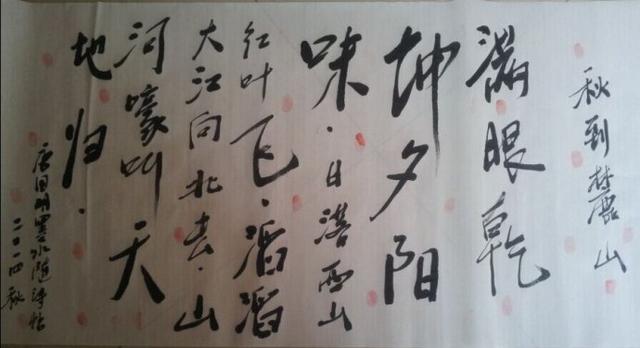 秋到麓山
满眼乾
坤夕阳
味.日落西山
红叶飞.滔滔
大江向北去.山
河嚎叫天
地归.
唐国明墨水随帖
二〇一四秋